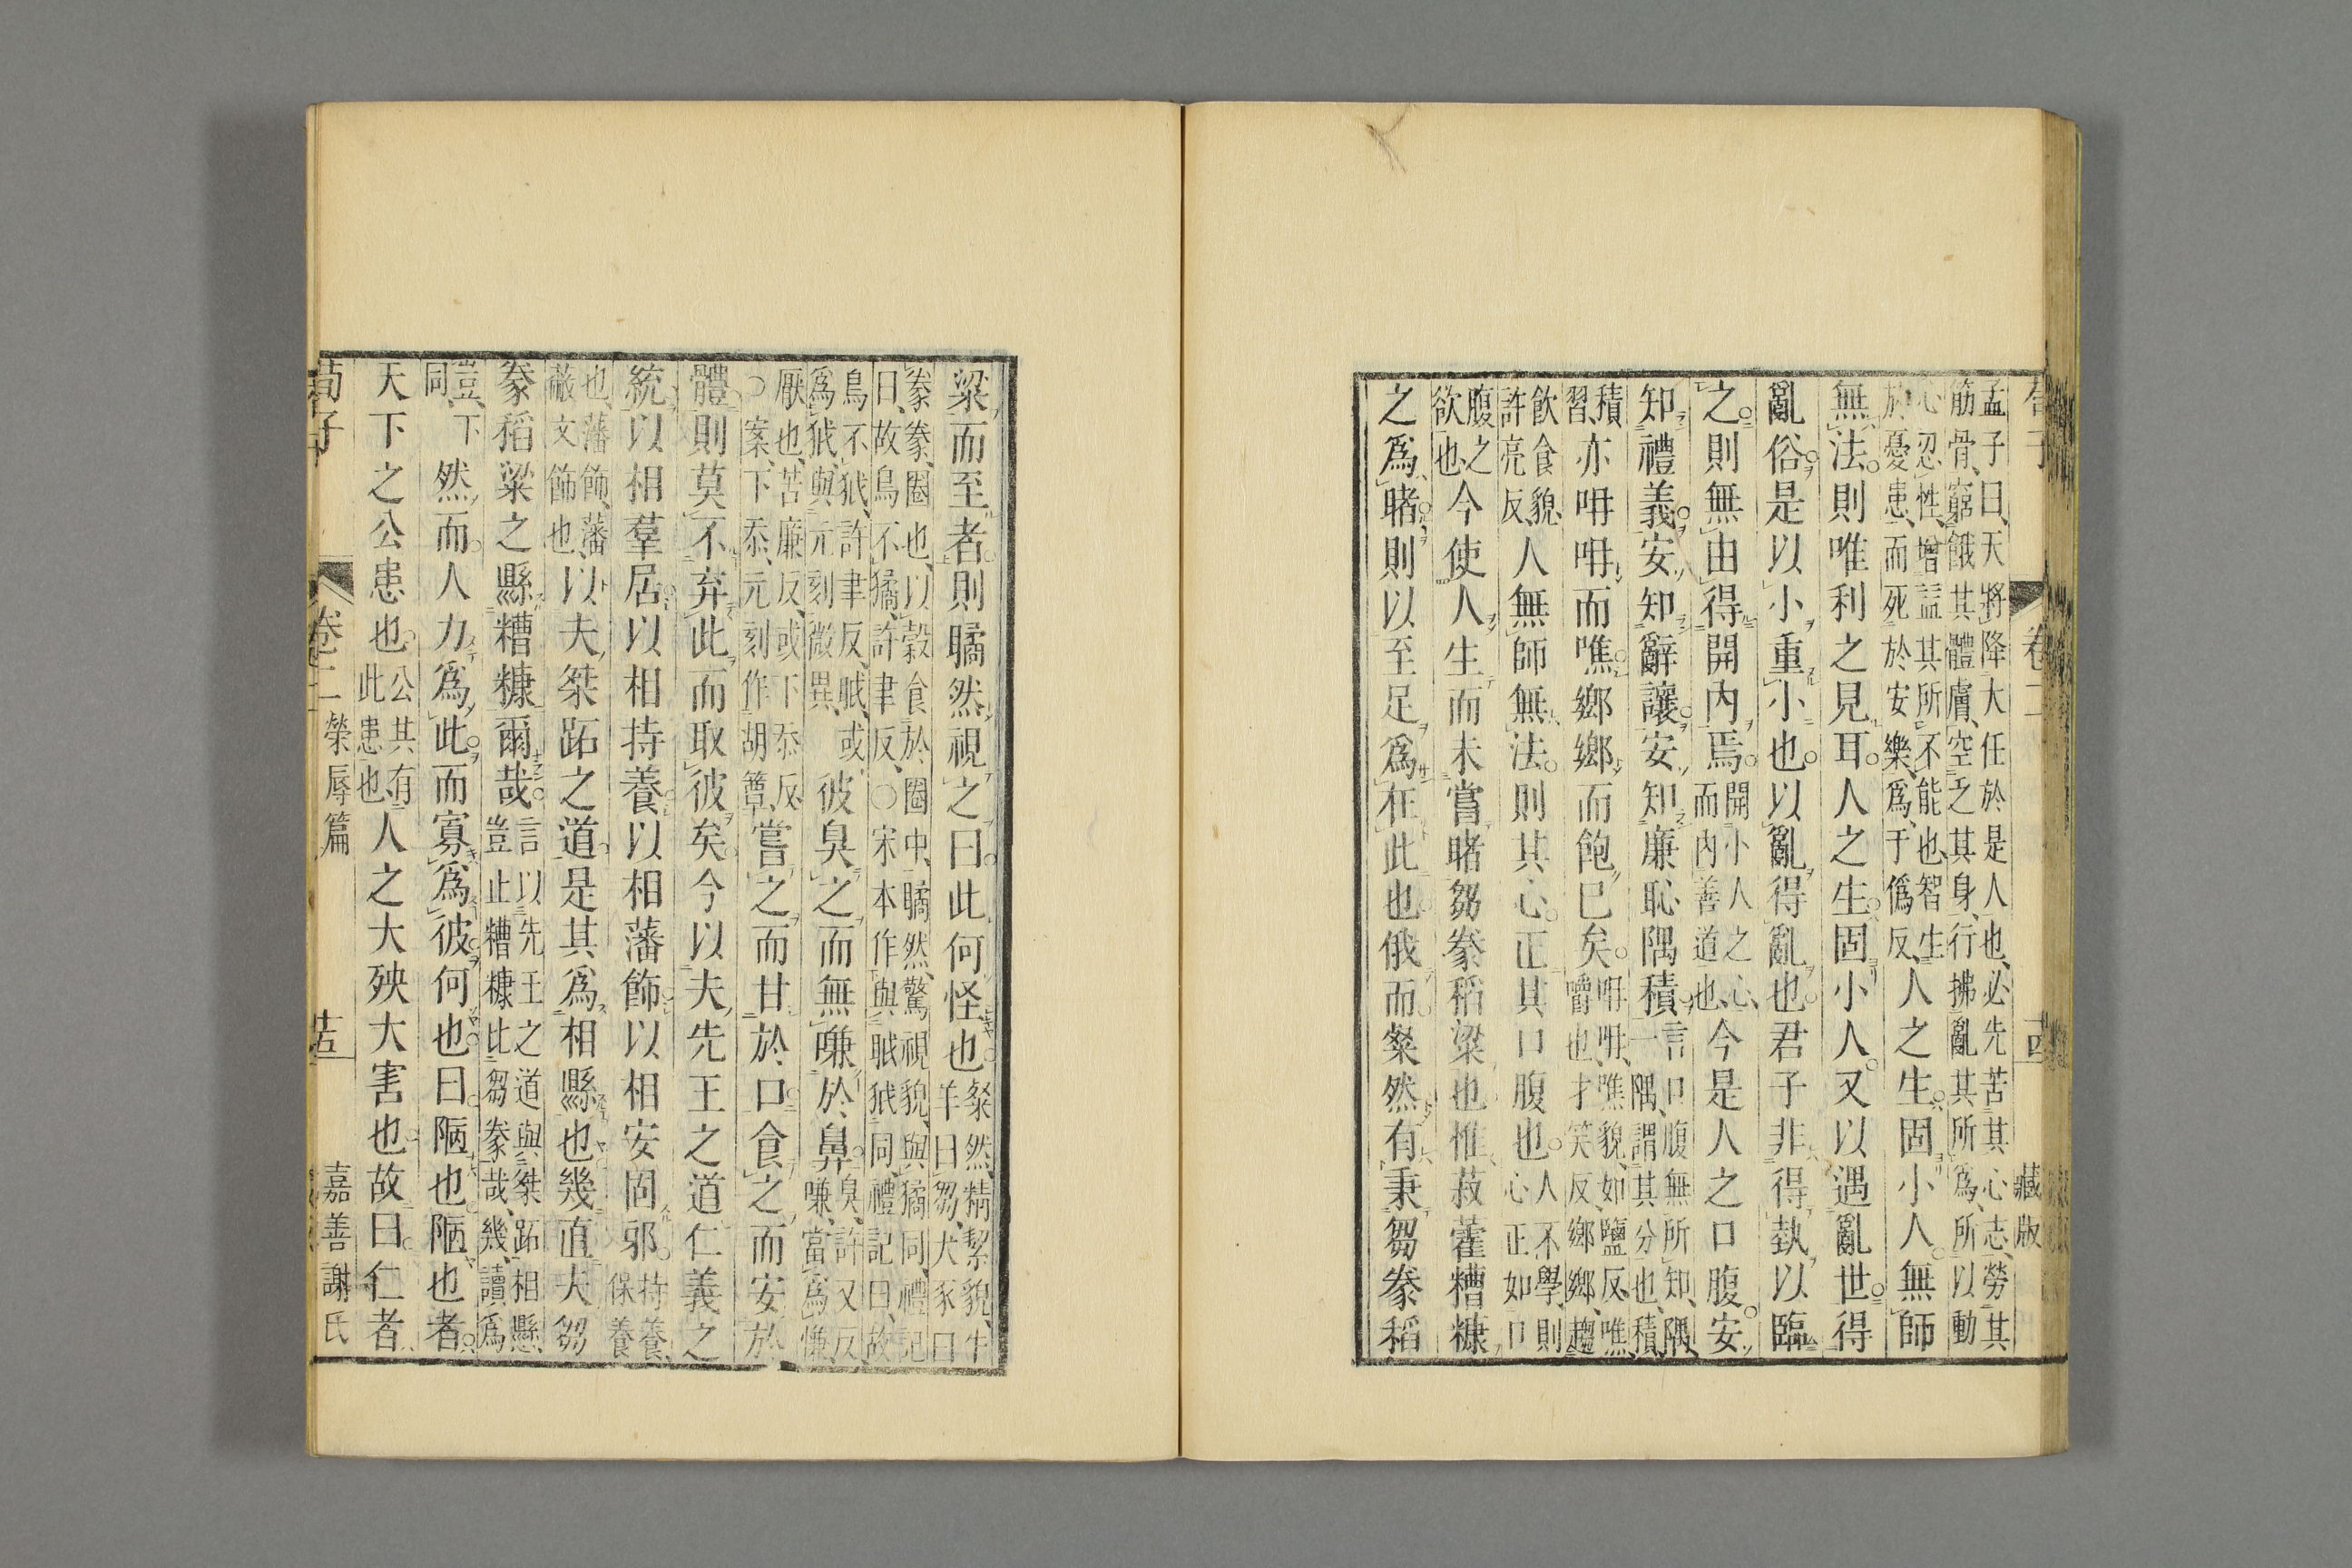 荀子 卷二 十四 藏版
孟子曰天將降大任於是人也必先苦其心志勞其
筋骨窮餓其體膚空乏其身行拂亂其所爲所以動
心忍性增益其所不能也智生
於憂患而死於安樂爲于僞反人之生固小人無師
無法則唯利之見耳人之生固小人又以遇亂世得
亂俗是以小重小也以亂得亂也君子非得埶以臨
之則無由得開內焉開小人之心
而內善道也今是人之口腹安
知禮義安知辭讓安知廉恥隅積言口腹無所知隅
一隅謂其分也積
積習亦呥呥而噍鄉鄉而飽已矣呥呥噍貌如鹽反噍
嚼也才笑反鄉鄉趨
飲食貌
許亮反人無師無法則其心正其口腹也人不學則
心正如口
腹之
欲也今使人生而未嘗睹芻豢稻粱也惟菽藿糟糠
之爲睹則以至足爲在此也俄而粲然有秉芻豢稻
粱而至者則瞲然視之曰此何怪也粲然精絜貌牛
羊曰芻犬豕曰
豢豢圈也以穀食於圈中瞲然驚視貌與獝同禮記
曰故鳥不獝許聿反○宋本作與眓狘同禮記曰故
鳥不狘許聿反眓或
爲狘與元刻微異彼臭之而無嗛於鼻臭許又反
嗛當爲慊
厭也苦廉反或下忝反
○案下忝元刻作胡簟嘗之而甘於口食之而安於
體則莫不弃此而取彼矣今以夫先王之道仁義之
統以相羣居以相持養以相藩飾以相安固邪持養
保養
也藩飾藩
蔽文飾也以夫桀跖之道是其爲相縣也幾直夫芻
豢稻粱之縣糟糠爾哉言以先王之道與桀跖相懸
豈止糟糠比芻豢哉幾讀爲
豈下
同然而人力爲此而寡爲彼何也曰陋也陋也者
天下之公患也公其有
此患也人之大殃大害也故曰仁者
荀子 卷二 榮辱篇 十五 嘉善謝氏